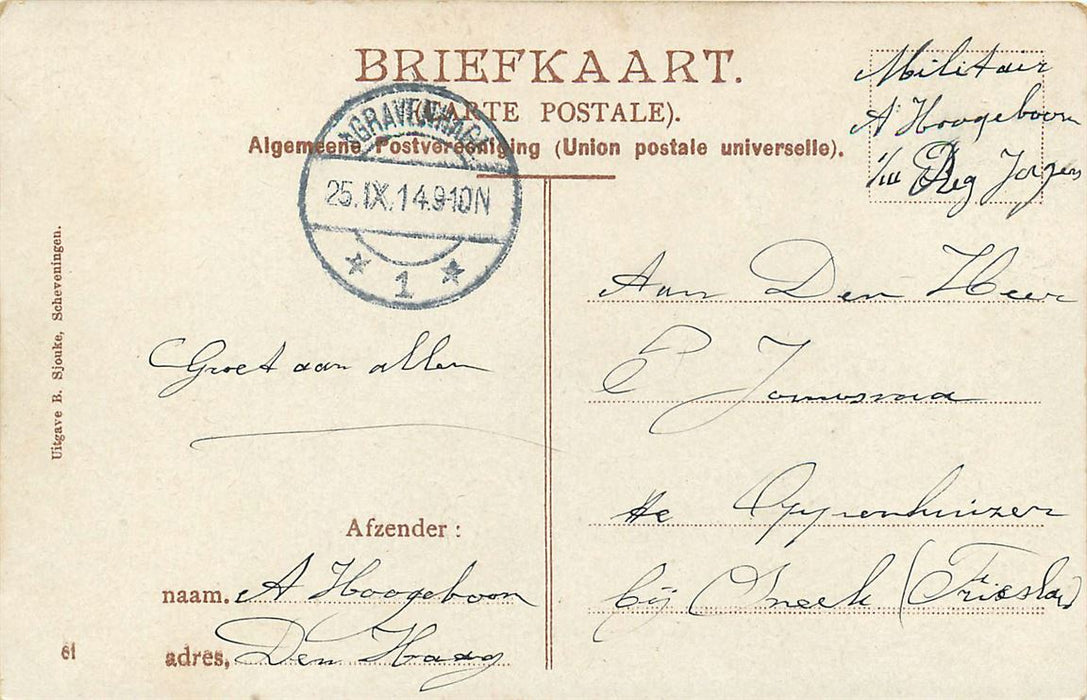 BRIEFKAART.
(CARTE POSTALE).
Algemeene Postvereeniging (Union postale universelle).
Militair
A Hoogeboom
1/III Reg Jagers
'SGRAVENHAGE
25.IX.14.9-10N
1
Aan Den Heer
te Oppenhuizen
bij Sneek (Friesland)
Groet aan allen
Afzender:
naam. A Hoogeboom
adres, Den Haag
Uitgave B. Sjouke, Scheveningen.
61